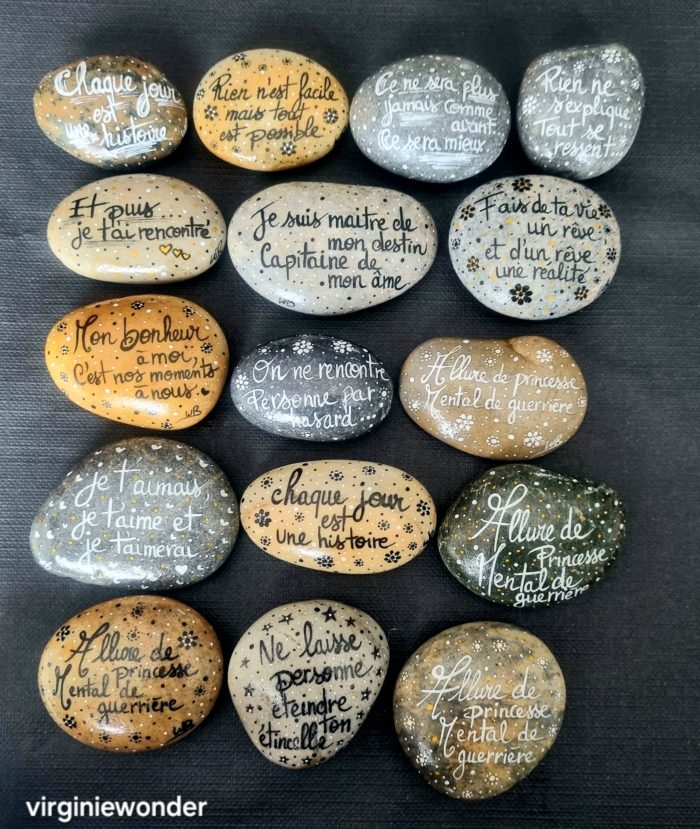 Chaque jour
est
une histoire
Rien n'est facile
mais tout
est possible
Ce ne sera plus
jamais comme
avant
Ce sera mieux
Rien ne
s'explique
Tout se
ressent
Et puis
je t'ai rencontré
WB
Je suis maitre de
mon destin
Capitaine de
mon âme
WB
Fais de ta vie
un rêve
et d'un rêve
une réalité
Mon bonheur
à moi,
C'est nos moments
à nous.
WB
On ne rencontre
Personne par
hasard
Allure de princesse
Mental de guerrière
WB
je t'aimais,
je t'aime et
je t'aimerai
chaque jour
est
une histoire
Allure de
Princesse
Mental de
guerrière
Allure de
princesse
Mental de
guerrière
WB
Ne laisse
personne
éteindre
ton
étincelle
Allure de
princesse
Mental de
guerrière
virginiewonder